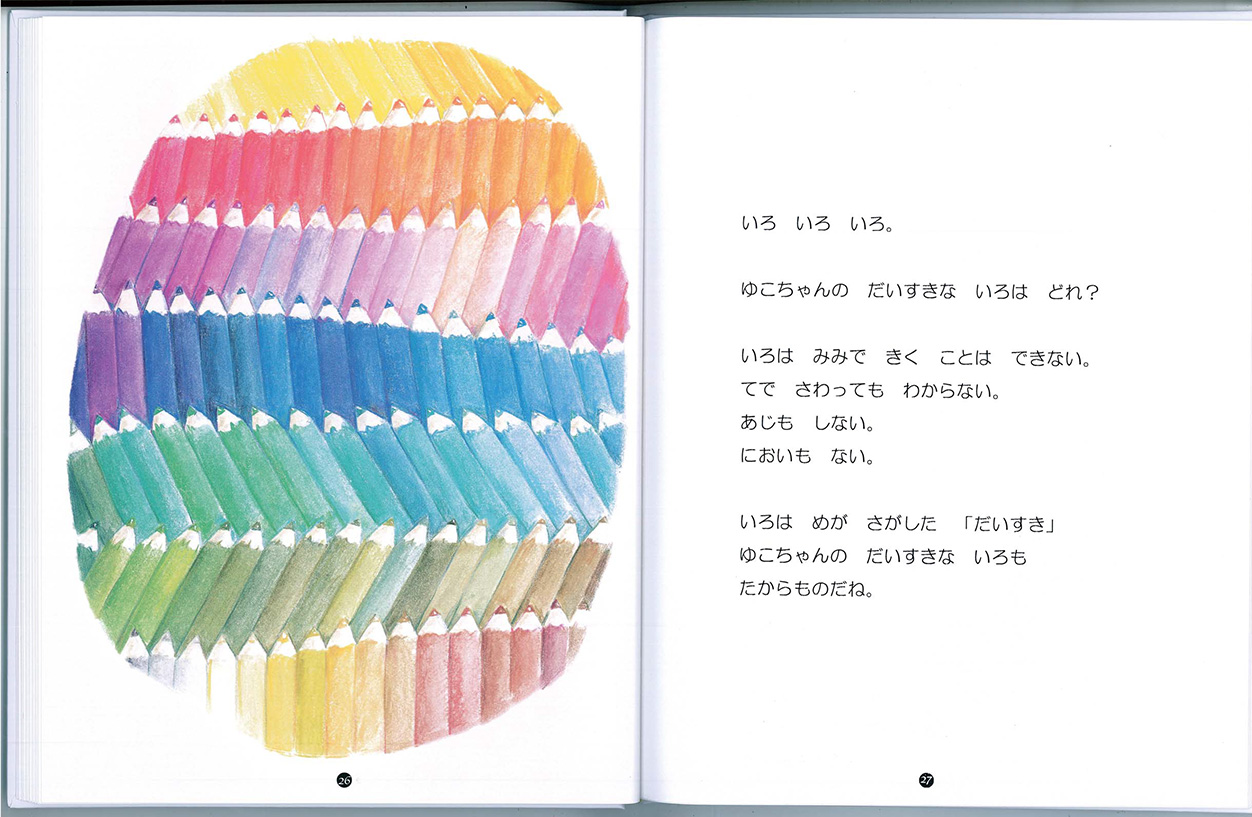 いろ　いろ　いろ。
ゆこちゃんの　だいすきな　いろは　どれ？
いろは　みみで　きく　ことは　できない。
てで　さわっても　わからない。
あじも　しない。
においも　ない。
いろは　めが　さがした　「だいすき」
ゆこちゃんの　だいすきな　いろも
たからものだね。
26
27